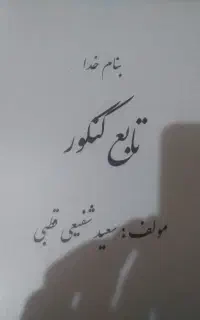 بنام خدا
تابع گنگور
مولف: سعید شفیعی قطبی